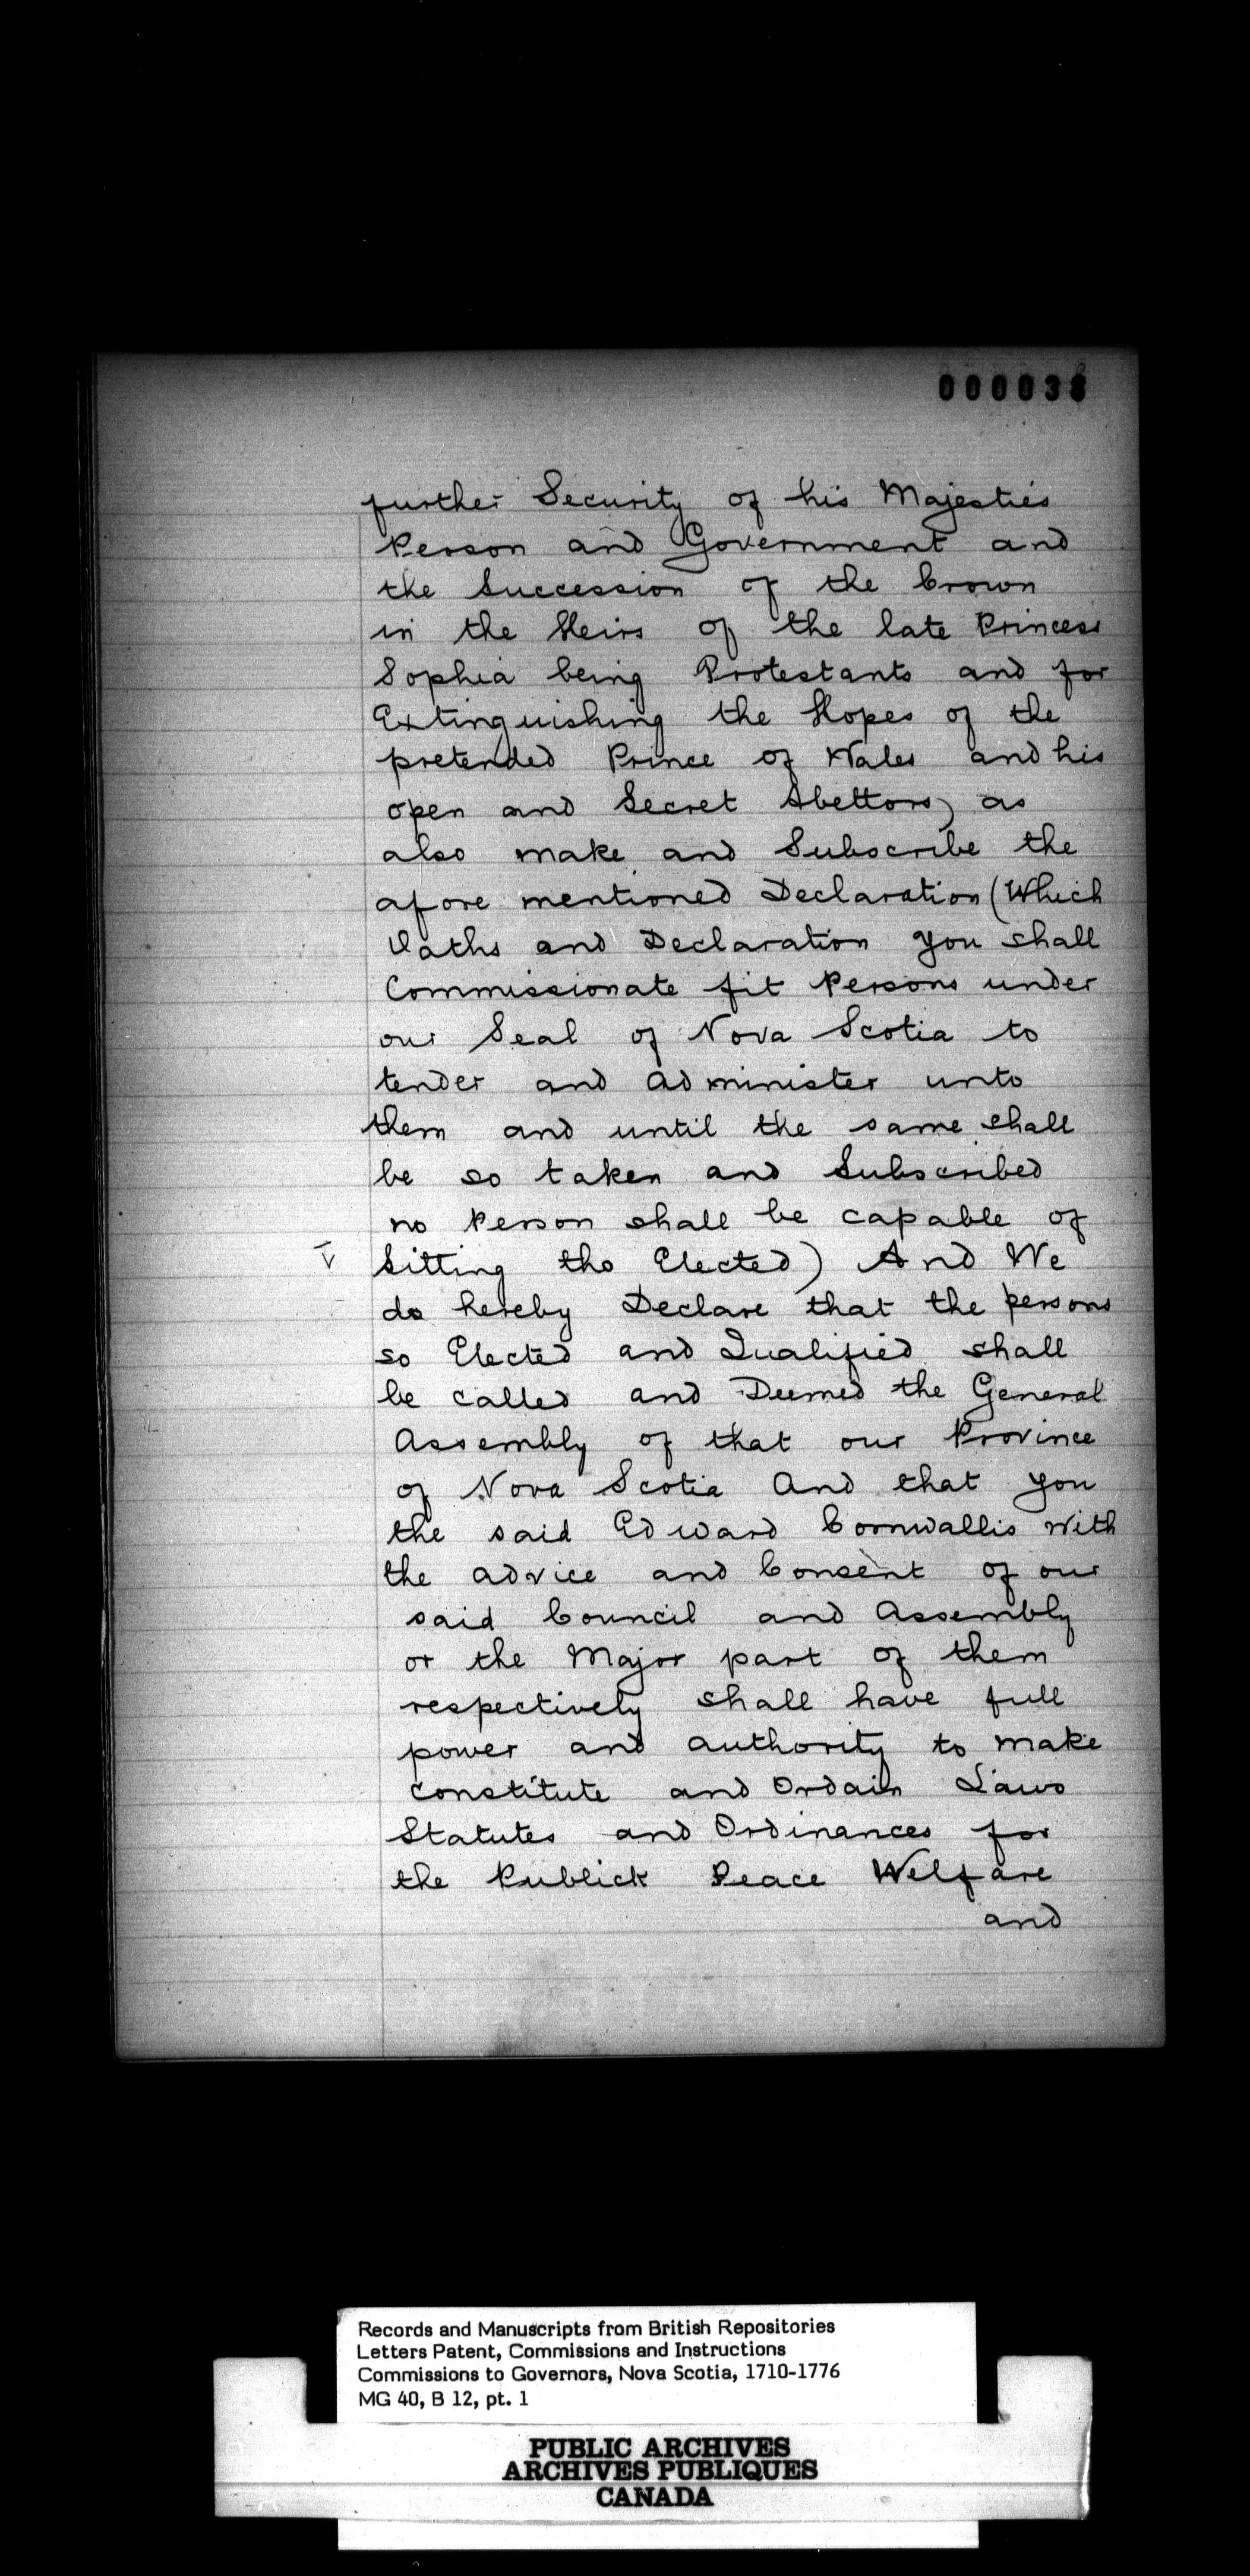 further Security of his Majesties
Person and Government and
the Succession of the Crown
in the Heirs of the late Princess
Sophia being Protestants and for
Extinguishing the Hopes of the
pretended Prince of Wales and his
open and Secret Abettors) as
also make and Subscribe the
afore mentioned Declaration (Which
Oaths and Declaration you shall
Commissionate fit Persons under
our Seal of Nova Scotia to
tender and administer unto
them and until the same shall
be so taken and Subscribed
no Person shall be capable of
Sitting tho Elected) And We
do hereby Declare that the persons
so Elected and Qualified shall
be called and Deemed the General
Assembly of that our Province
of Nova Scotia And that you
the said Edward Cornwallis with
the advice and Consent of our
said Council and Assembly
or the Major part of them
respectively shall have full
power and authority to make
constitute and Ordain Laws
Statutes and Ordinances for
the Publick Peace Welfare
and
Records and Manuscripts from British Repositories
Letters Patent, Commissions and Instructions
Commissions to Governors, Nova Scotia, 1710-1776
MG 40, B 12, pt. 1
PUBLIC ARCHIVES
ARCHIVES PUBLIQUES
CANADA